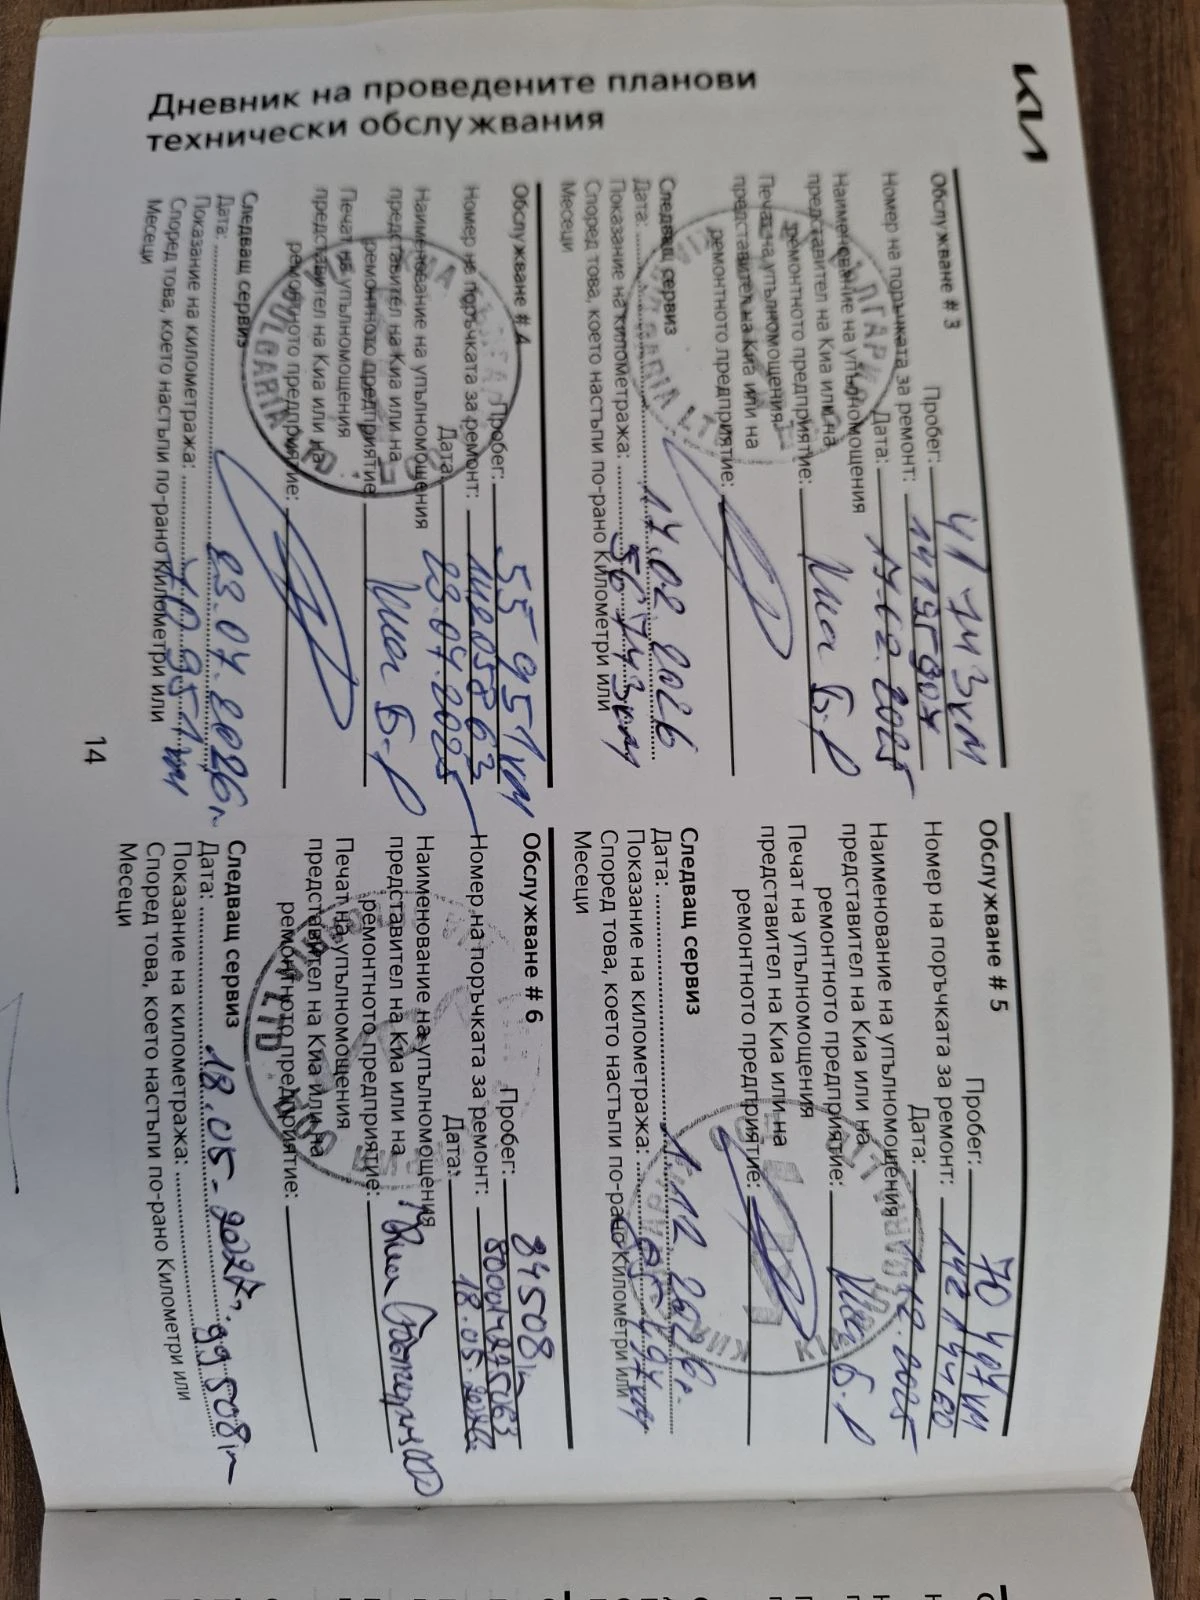 KIA
Дневник на проведените планови
технически обслужвания
Обслужване # 3
Пробег: 41 743 км
Номер на поръчката за ремонт:
Дата: 17.02.2025
Наименование на упълномощения
представител на Киа или на
ремонтното предприятие: Киа Б-Р
Печат на упълномощения
представител на Киа или на
ремонтното предприятие:
Следващ сервиз
Дата: 17.02.2026
Показание на километража: 56743км
Според това, което настъпи по-рано Километри или
Месеци
Обслужване # 4
Пробег: 55 951 км
Номер на поръчката за ремонт: 14205863
Дата: 23.07.2025
Наименование на упълномощения
представител на Киа или на
ремонтното предприятие: Киа Б-Р
Печат на упълномощения
представител на Киа или на
ремонтното предприятие:
Следващ сервиз
Дата: 23.07.2026г
Показание на километража: 70 951 км
Според това, което настъпи по-рано Километри или
Месеци
14
Обслужване # 5
Пробег: 70 497 км
Номер на поръчката за ремонт: 142 144 60
Дата: 1.12.2025
Наименование на упълномощения
представител на Киа или на
ремонтното предприятие: Киа Б-Р
Печат на упълномощения
представител на Киа или на
ремонтното предприятие:
Следващ сервиз
Дата: 1.12.2026г.
Показание на километража: 85 497 км
Според това, което настъпи по-рано Километри или
Месеци
Обслужване # 6
Пробег: 84508
Номер на поръчката за ремонт:
Дата: 18.05.2026
Наименование на упълномощения
представител на Киа или на
ремонтното предприятие: Киа
Печат на упълномощения
представител на Киа или на
ремонтното предприятие:
Следващ сервиз
Дата: 18.05.2027г.
Показание на километража: 99508
Според това, което настъпи по-рано Километри или
Месеци